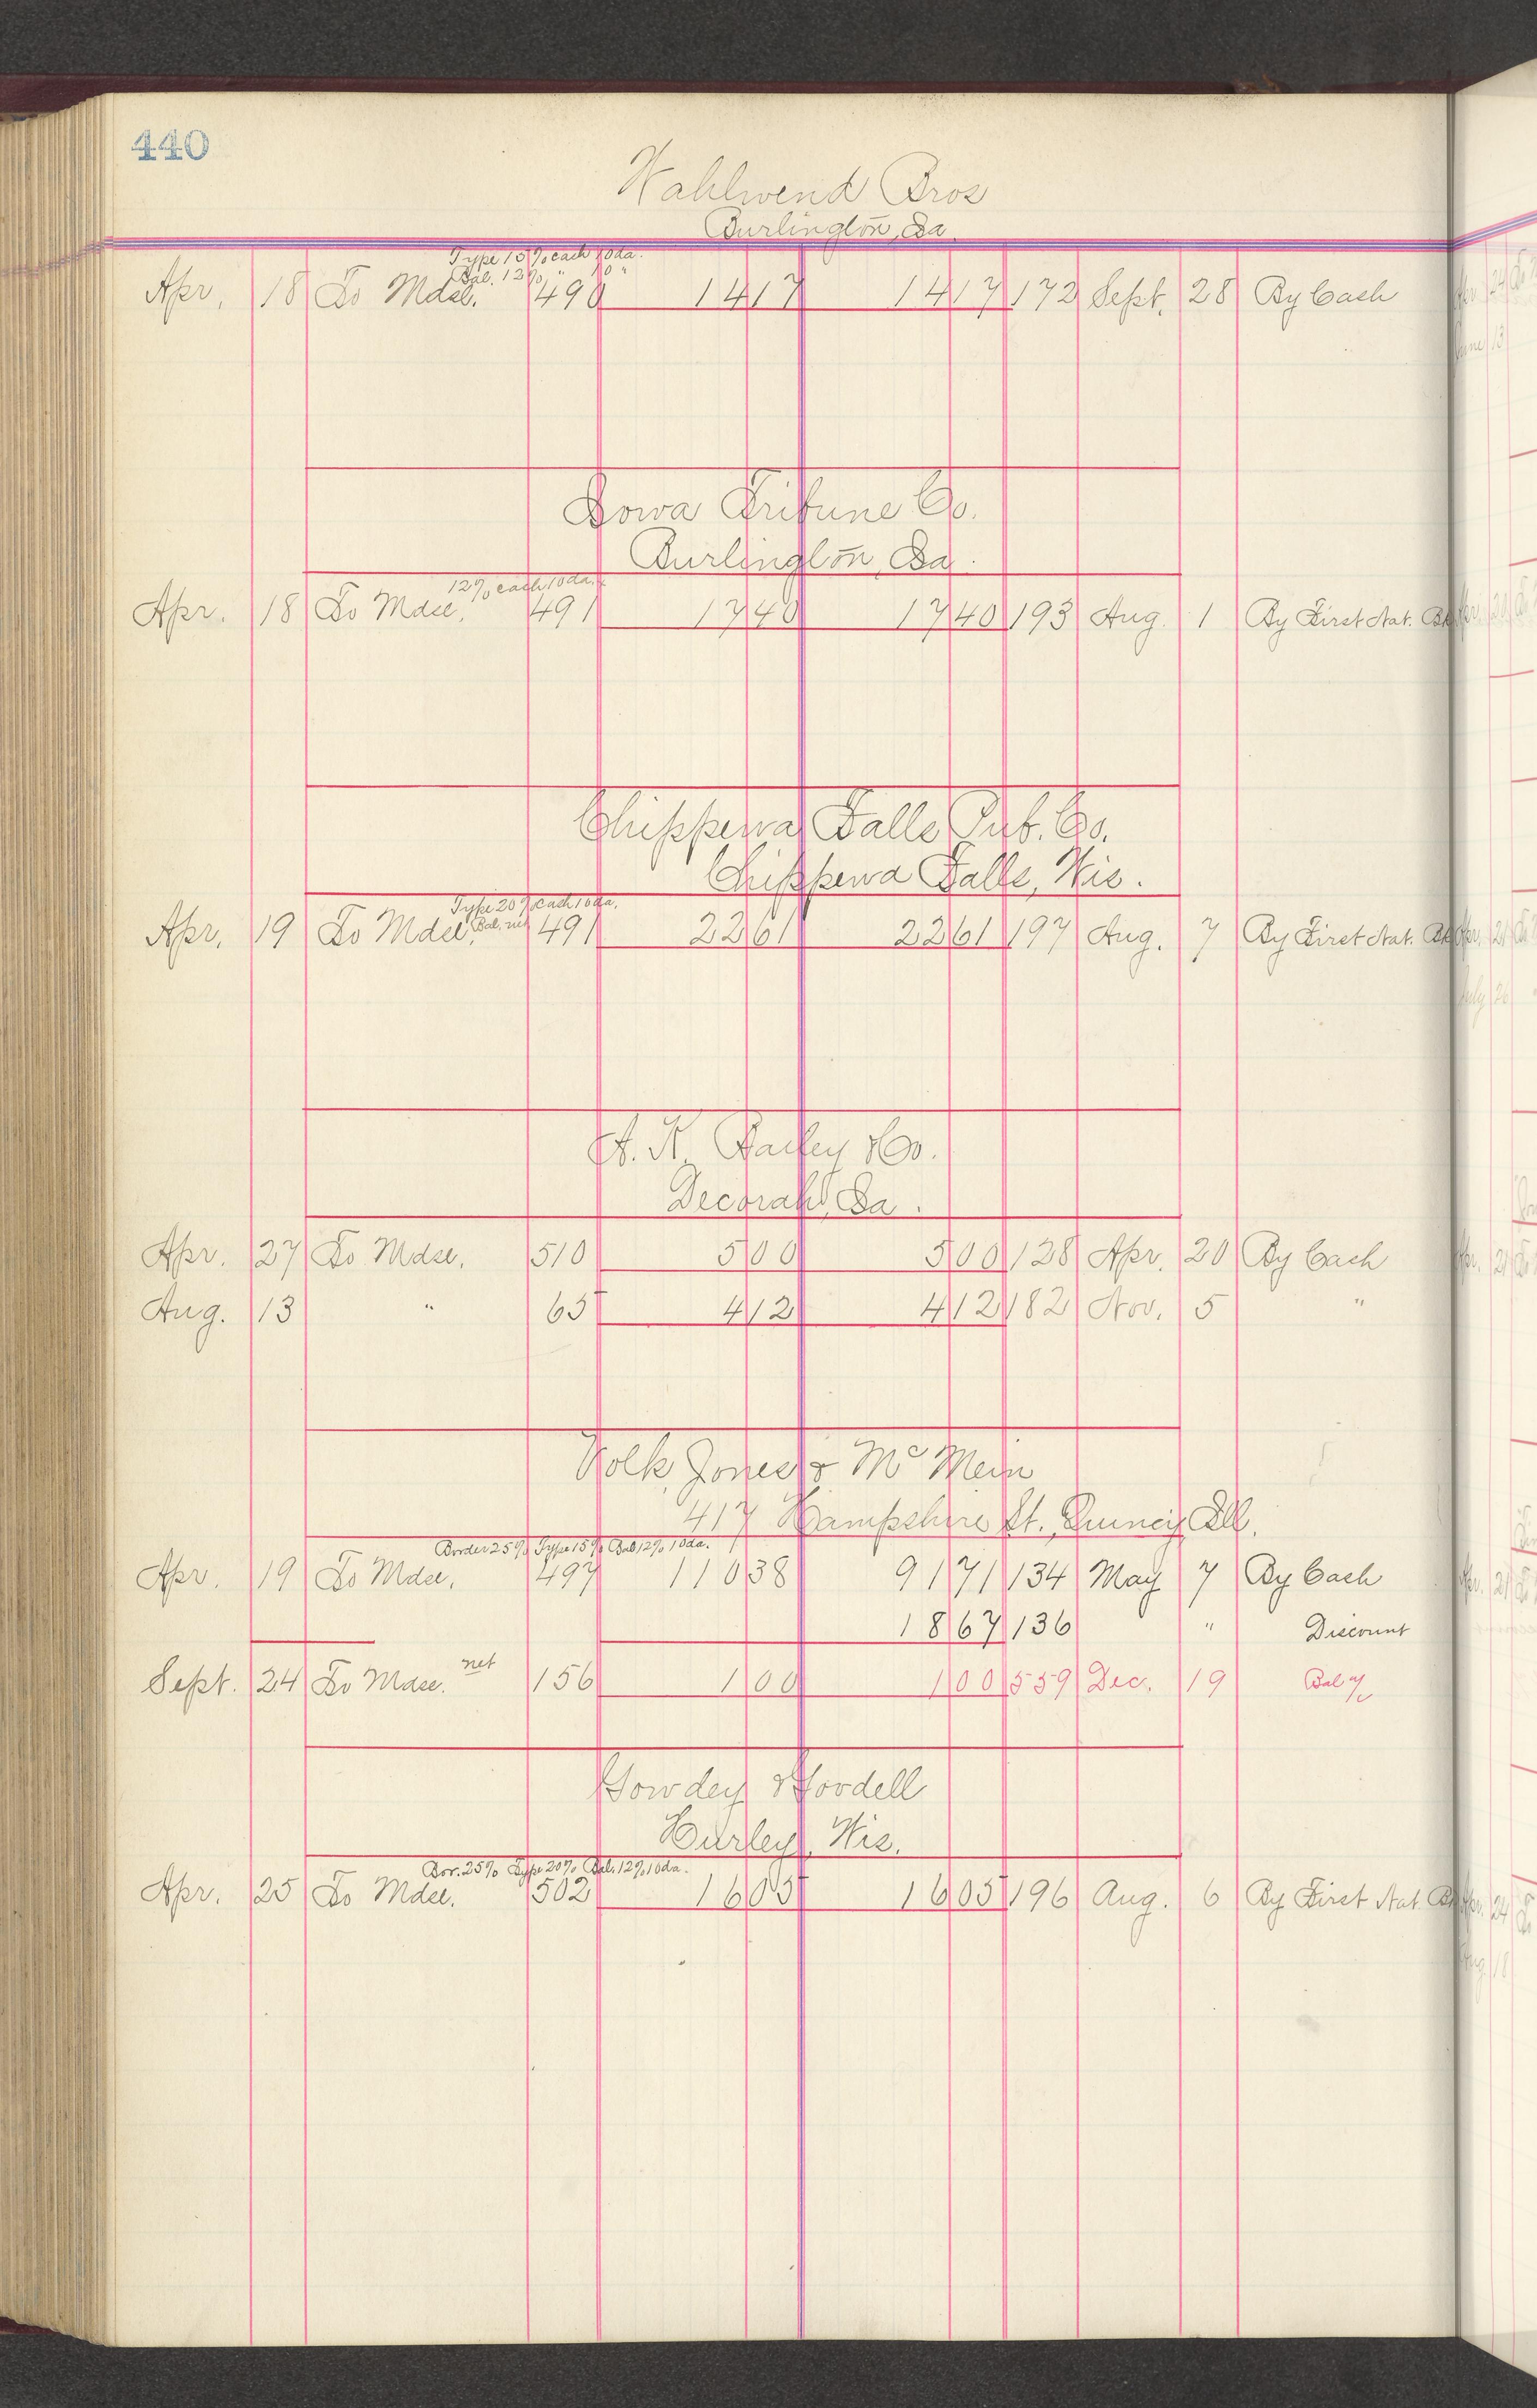 440
Wahlwend Bros
Burlington, Ia.
Type 15% each 10da.
Bal. 12% " 10 "
Apr. 18 To Mdse. 490 14 17 14 17 172 Sept. 28 By Cash
Iowa Tribune Co.
Burlington, Ia.
12% each 10da.
Apr. 18 To Mdse. 491 17 40 17 40 193 Aug. 1 By First Nat. Bk
Chippewa Falls Pub. Co.
Chippewa Falls, Wis.
Type 20% each 10da.
Apr. 19 To Mdse. Bal. net 491 22 61 22 61 197 Aug. 7 By First Nat. Bk
A. K. Bailey & Co.
Decorah, Ia.
Apr. 27 To Mdse. 510 5 00 5 00 128 Apr. 20 By Cash
Aug. 13 " 65 4 12 4 12 182 Nov. 5 "
Volk, Jones & Mc Mein
417 Hampshire St., Quincy, Ill.
Border 25% Type 15% Bal 12% 10da.
Apr. 19 To Mdse. 497 110 38 91 71 134 May 7 By Cash
18 67 136 " Discount
Sept. 24 To Mdse. net 156 1 00 1 00 559 Dec. 19 Bal a/c
Gowdey & Goodell
Hurley, Wis.
Bor. 25% Type 20% Bal. 12% 10da.
Apr. 25 To Mdse. 502 16 05 16 05 196 Aug. 6 By First Nat. B